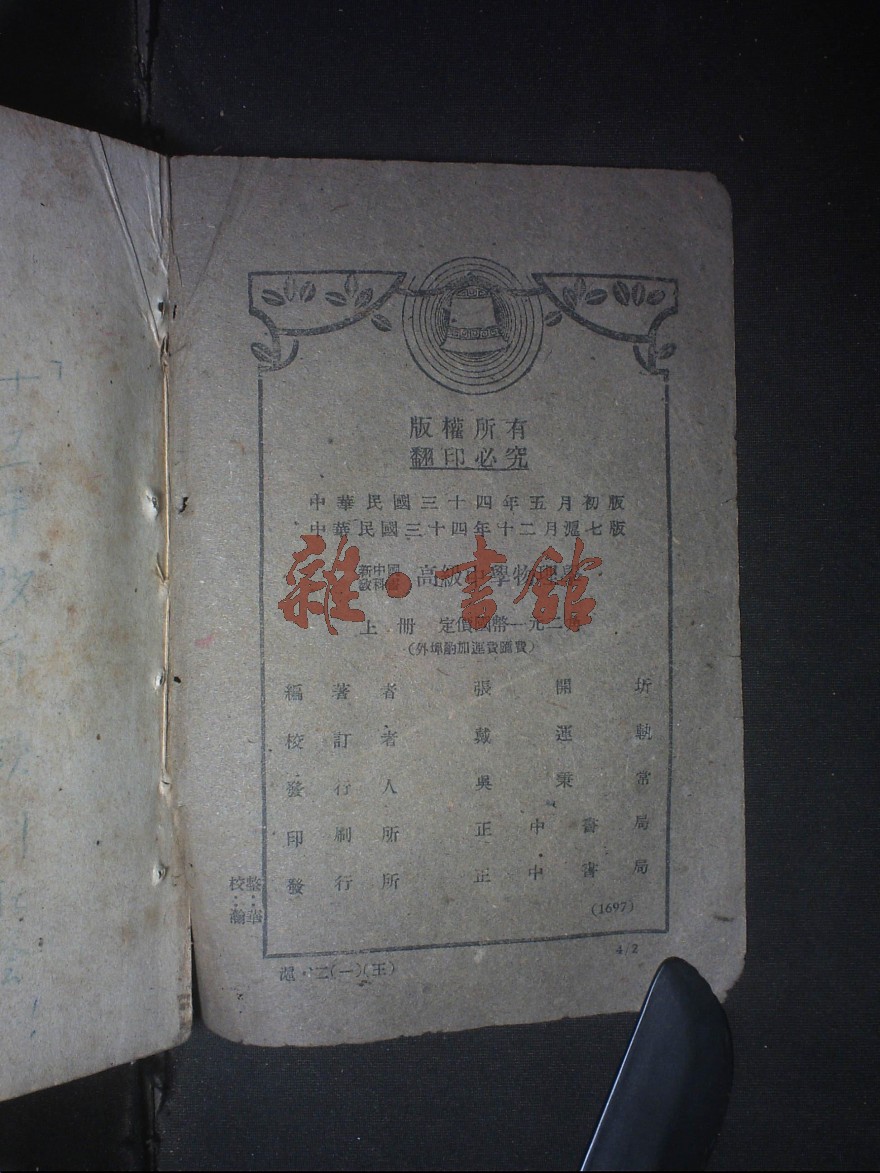 版權所有
翻印必究
中華民國三十四年五月初版
中華民國三十四年十二月滬七版
新中國教科書 高級中學物理學
上冊 定價國幣一元二角
(外埠酌加運費匯費)
編著者 張開圻
校訂者 戴運軌
發行人 吳秉常
印刷所 正中書局
發行所 正中書局
(1697)
4/2
雜·書館